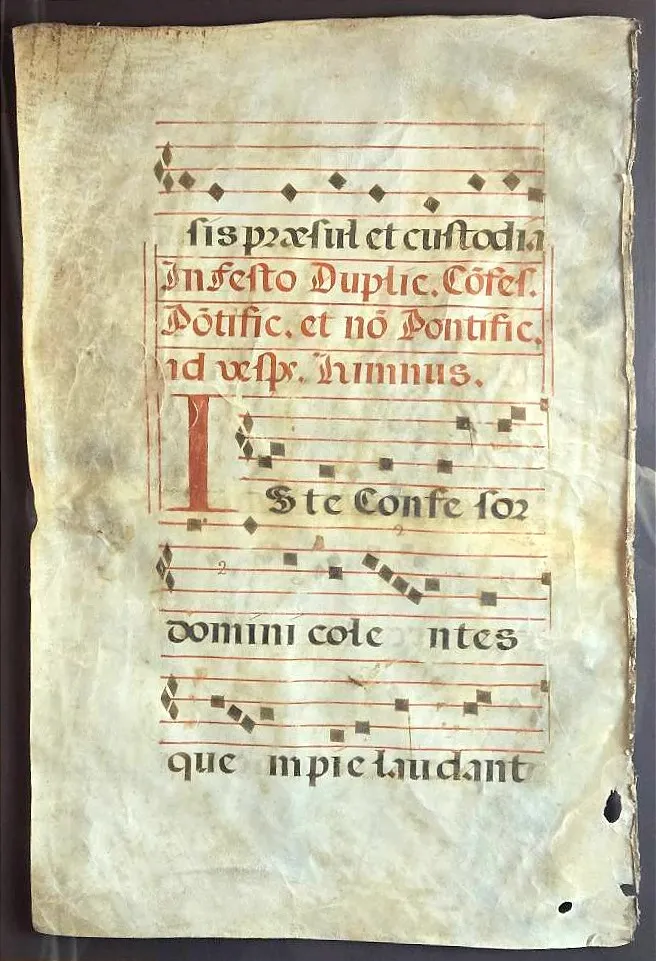 sis præsul et custodia
In Festo Duplic. Cõfes.
Põtific. et nõ Pontific.
ad vesp. Himnus.
ISte Confesor
domini cole ntes
2
2
que mpie laudant